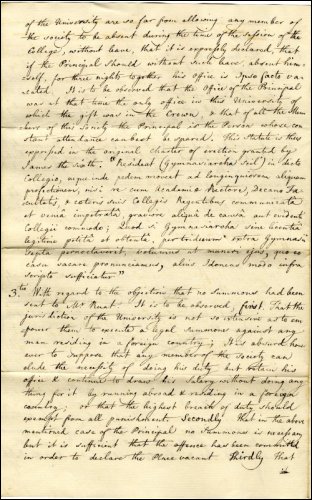 of the University are so far from allowing any member of
the society to be absent during the time of the session of the
College, without leave, that it is expressly declared, that
if the Principal should without such leave, absent him=
self, for three nights together his office is Ipso facto vac=
cated. It is to be observed that the Office of the Principal
was at that time the only office in this University of
which the gift was in the Crown, & that of all the Mem
bers of this Society the Principal is the Person whose con
stant attendance can best be spared. This statute is thus
expressed in the original charter of erection granted by
James the sixth. "Resideat (Gymnasiarcha Scil) in dicto
Collegio, neque inde pedem moveat ad longinquiorem aliquam
profectionem, nisi re cum Academiæ Rectore, Decano Fa
cultatis, & cæteris suis Collegii Regentibus communicata
et venia impetrata, graviore aliqua de causa aut evidenti
Collegii comodo; Quod si Gymnasiarcha sine licentia
legitime petita et obtenta, per triduum extra Gymnasi
septa pernoctaverit, volumus ut munus ejus, quo eo
casu vacare pronunciamus, alius Idoneus modo infra
scripto sufficiatur"
3tio With regard to the objection that no summons had been
sent to Mr Ruat. It is to be observed, first. That the
jurisdiction of the University is not so extensive as to em
power them to execute a legal summons against any
man residing in a foreign country; It is absurd how
ever to suppose that any member of the Society can
elude the necessity of doing his duty but retain his
office & continue to draw his Salary without doing any
thing for it by running abroad & residing in a foreign
country; or that the highest breach of duty should
exempt from all punishment. Secondly That in the above
mentioned case of the Principal no summons is necessary
but it is sufficient that the offence has been committed
in order to declare the Place vacant Thirdly That